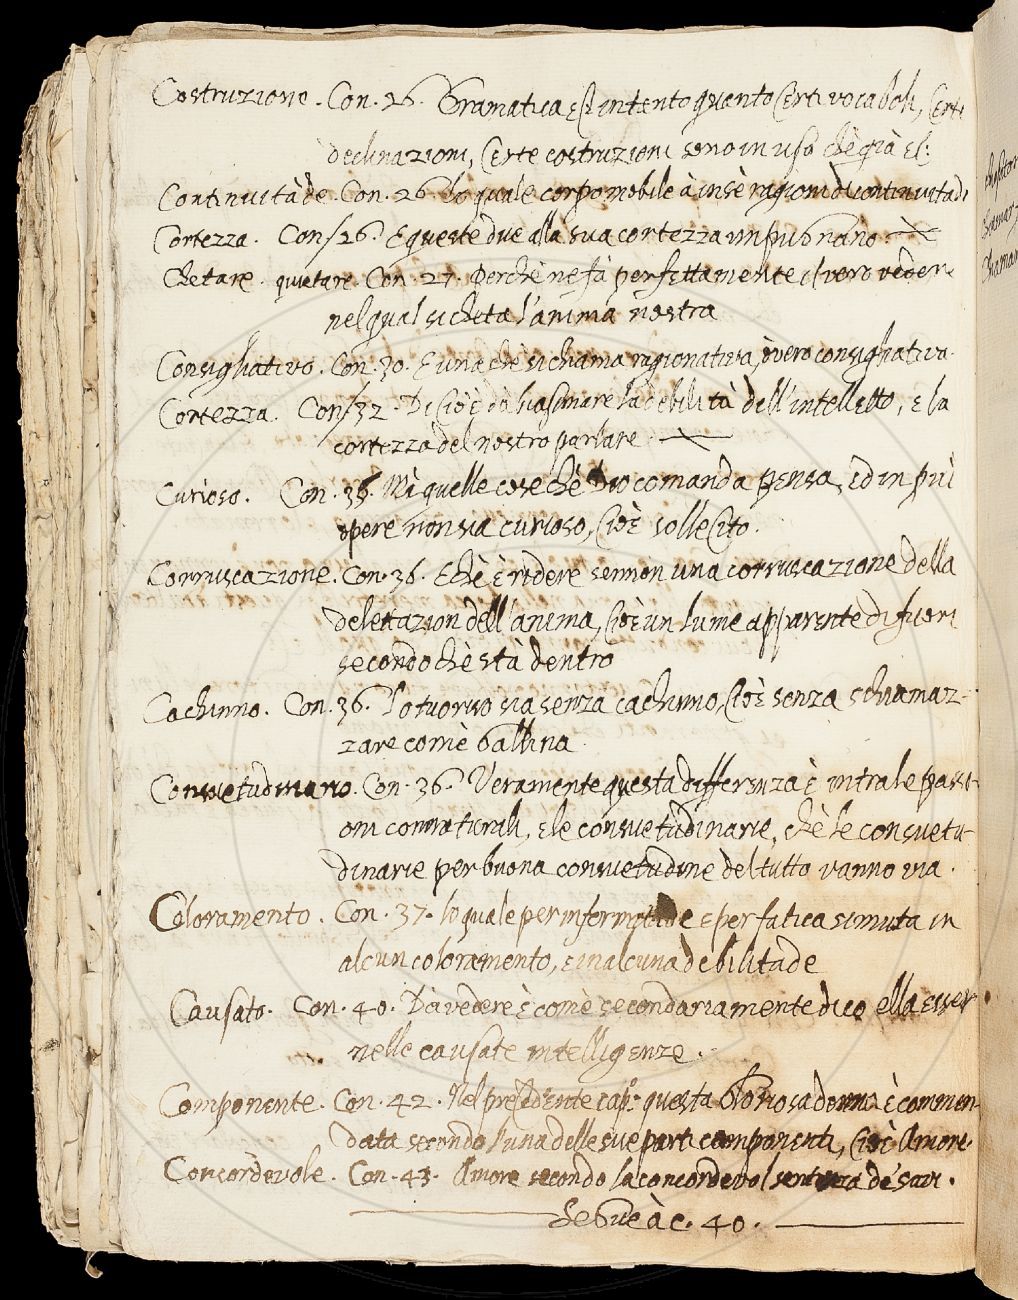 Costruzione. Con. 26. Gramatica è. In tanto quanto Certi vocaboli, Certe
declinazioni, Certe costruzioni sono in uso chè già
Continuitàde. Con. 26. Lo quale corpo mobile à in sè ragion di continuitade
Cortezza. Con. 26. E queste due alla sua cortezza
Chetare. quietare. Con. 27. Perchè ne fà perfettamente il vero vedere
nel qual si cheta l'anima nostra
Consigliativo. Con. 30. E una chè si chiama ragionativa, òvero consigliativa.
Cortezza. Con. 32. Di Ciò è da biasimare la debilità dell'intelletto, e la
cortezza del nostro parlare
Curioso. Con. 35. Mà quelle cose chè Dio comanda pensa, ed in più
opere non sia curioso, Cioè sollecito.
Corruscazione. Con. 36. E chè è ridere se non una corruscazione della
delettazion dell'anima, Cioè un lume apparente di fuori
secondo chè stà dentro
Cachinno. Con. 36. Lo tuo riso sia senza cachinno, Cioè senza schiamaz-
zare comè Gallina
Consuetudinario. Con. 36. Veramente questa differenza è intra le passi-
oni connaturali, e le consuetudinarie, chè le consuetu-
dinarie per buona consuetudine del tutto vanno via.
Coloramento. Con. 37. Lo quale per infermitade e per fatica si muta in
alcun coloramento, e in alcuna debilitade
Causato. Con. 40. Dà vedere è comè secondariamente dico ella esser
nelle causate intelligenze.
Componente. Con. 42. Nel precedente cap.º questa Gloriosa donna è commen-
data secondo l'una delle sue parti componenti, Cioè Amore.
Concordevole. Con. 43. Amore secondo la concordevol sentenza dè savi.
Segue à c. 40.